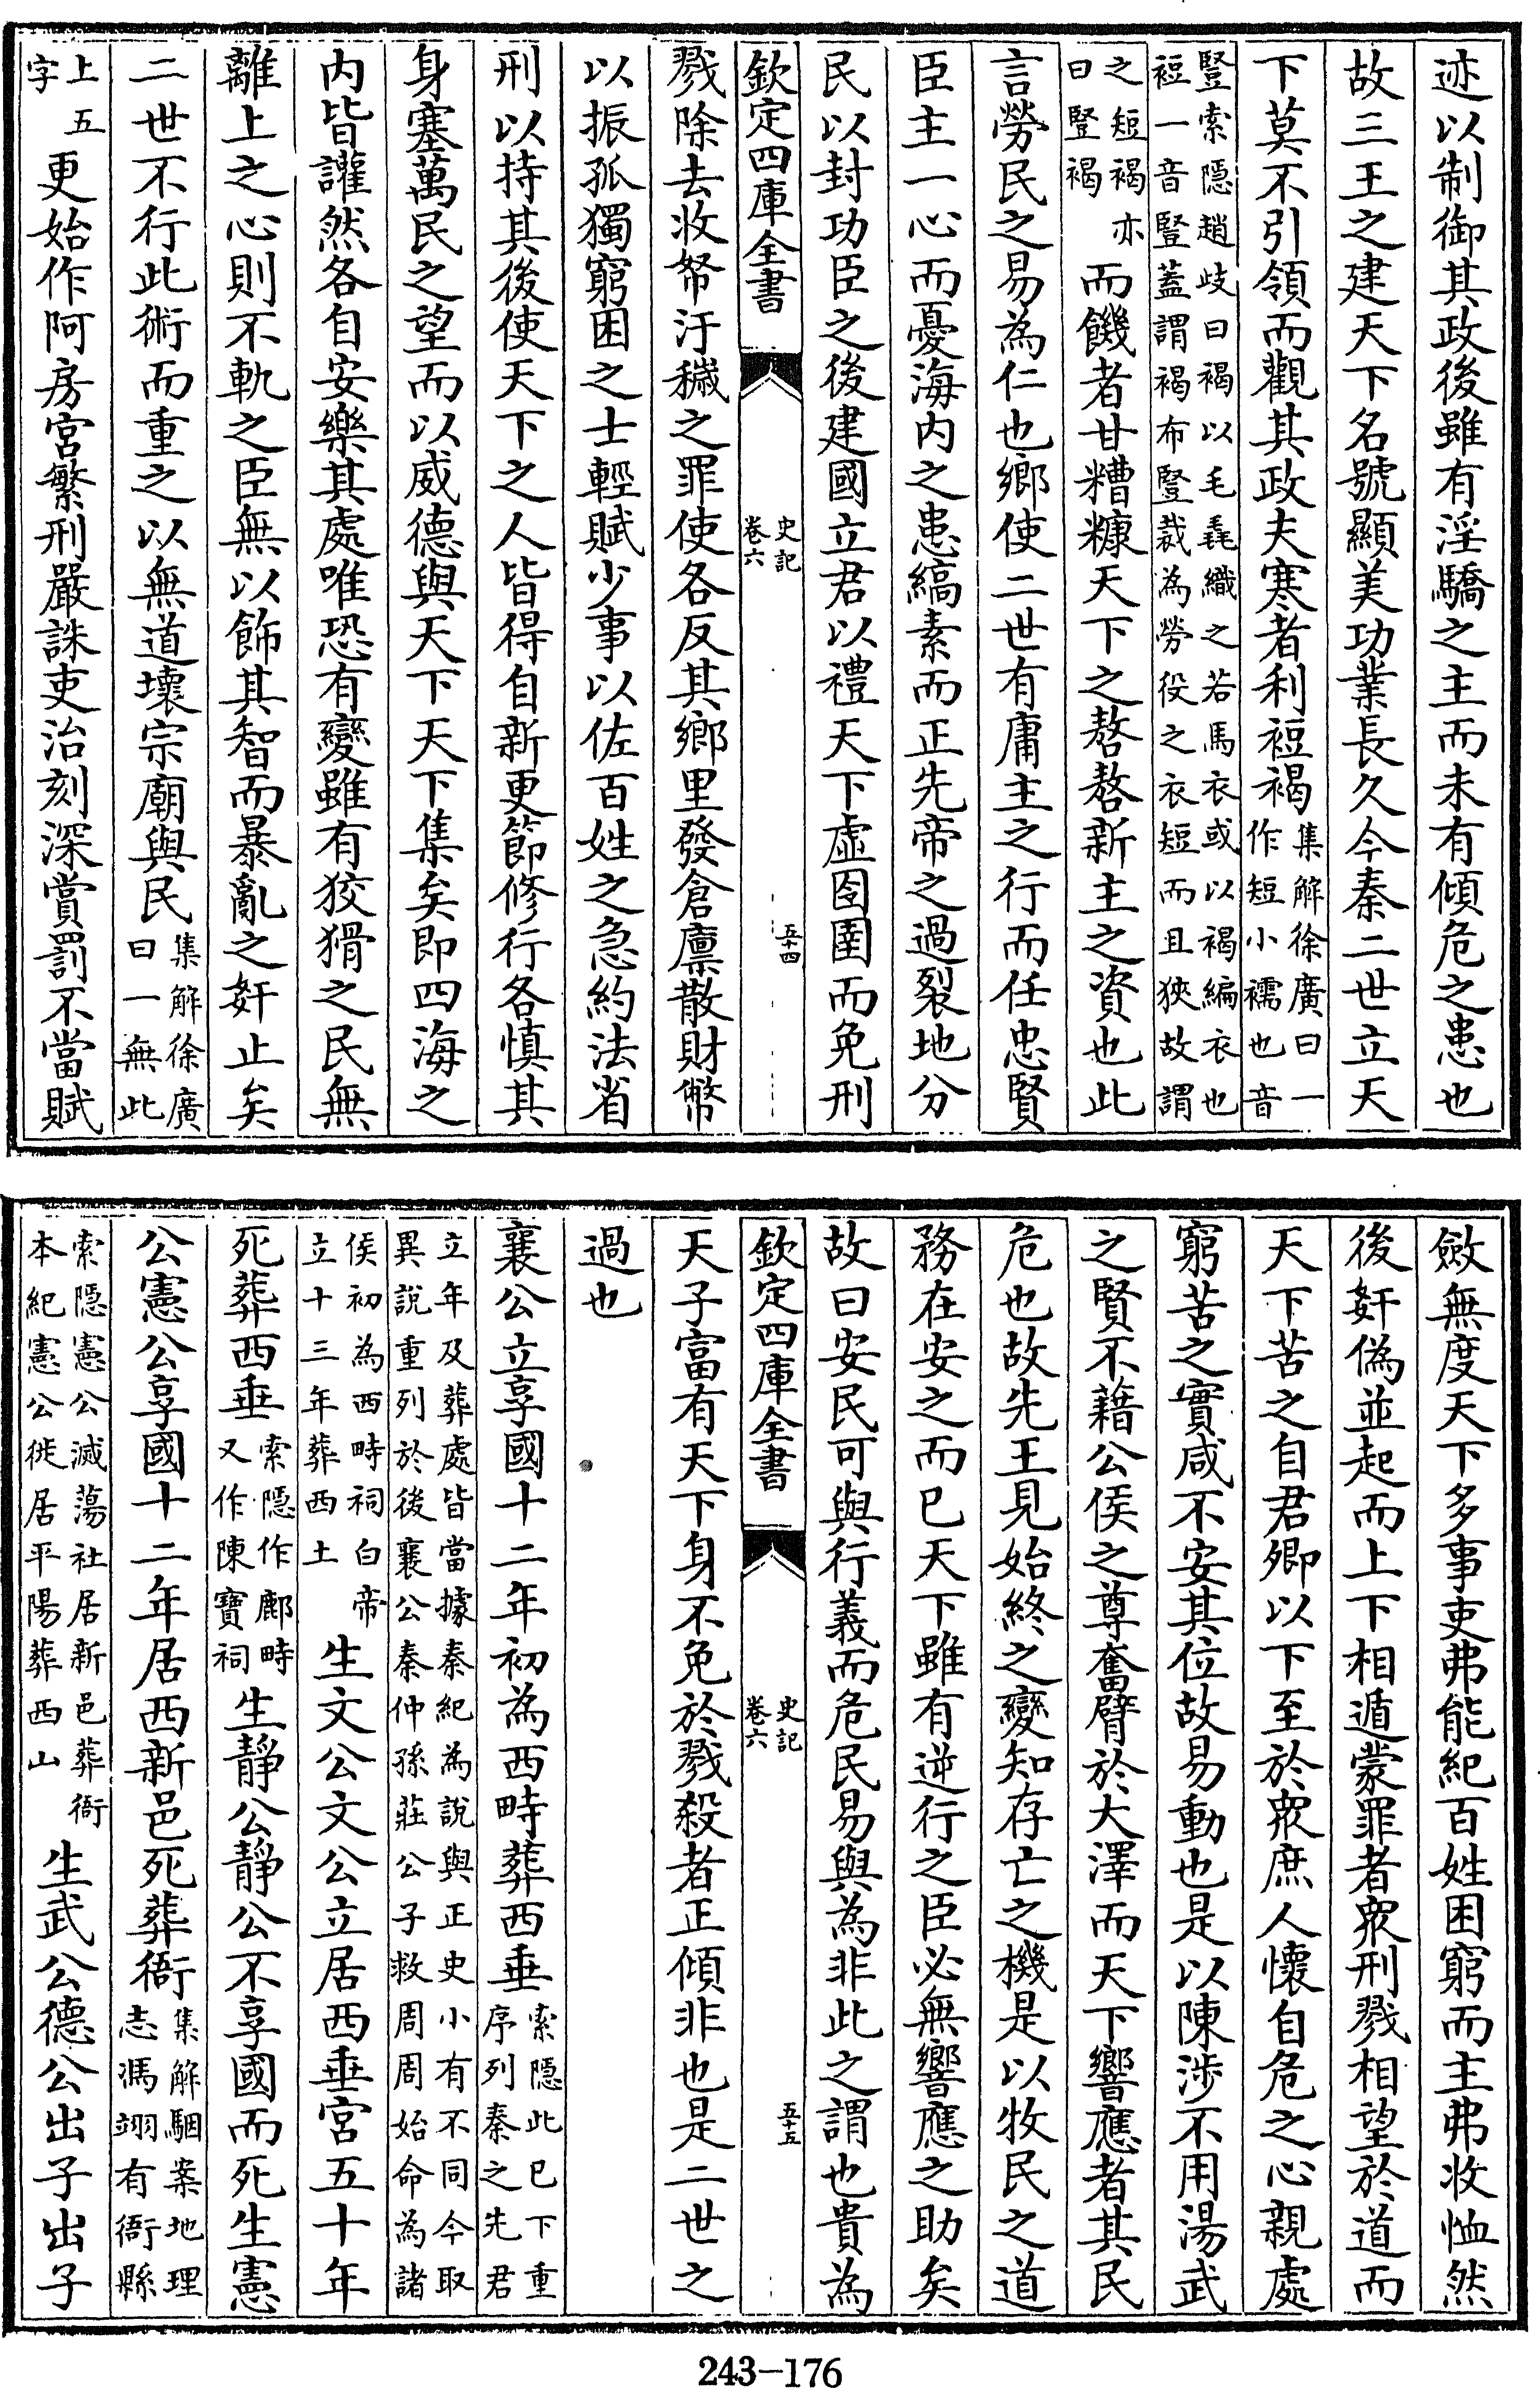 迹以制御其政後雖有淫驕之主而未有傾危之患也
故三王之建天下名號顯美功業長久今秦二世立天
下莫不引領而觀其政夫寒者利裋褐集解徐廣曰一作短小襦也音
豎索隱趙歧曰褐以毛毳織之若馬衣或以褐編衣也裋一音豎蓋謂褐布豎裁為勞役之衣短而且狹故謂
之短褐亦曰豎褐而饑者甘糟糠天下之嗸嗸新主之資也此
言勞民之易為仁也鄉使二世有庸主之行而任忠賢
臣主一心而憂海內之患縞素而正先帝之過裂地分
民以封功臣之後建國立君以禮天下虛囹圄而免刑
欽定四庫全書 史記卷六 五十四
戮除去收帑汙穢之罪使各反其鄉里發倉廩散財幣
以振孤獨窮困之士輕賦少事以佐百姓之急約法省
刑以持其後使天下之人皆得自新更節修行各慎其
身塞萬民之望而以威德與天下天下集矣即四海之
內皆讙然各自安樂其處唯恐有變雖有狡猾之民無
離上之心則不軌之臣無以飾其智而暴亂之奸止矣
二世不行此術而重之以無道壞宗廟與民集解徐廣曰一無此
上五字更始作阿房宮繁刑嚴誅吏治刻深賞罰不當賦
斂無度天下多事吏弗能紀百姓困窮而主弗收恤然
後奸偽並起而上下相遁蒙罪者衆刑戮相望於道而
天下苦之自君卿以下至於衆庶人懷自危之心親處
窮苦之實咸不安其位故易動也是以陳涉不用湯武
之賢不藉公侯之尊奮臂於大澤而天下響應者其民
危也故先王見始終之變知存亡之機是以牧民之道
務在安之而已天下雖有逆行之臣必無響應之助矣
故曰安民可與行義而危民易與為非此之謂也貴為
欽定四庫全書 史記卷六 五十五
天子富有天下身不免於戮殺者正傾非也是二世之
過也
襄公立享國十二年初為西畤葬西垂索隱此已下重序列秦之先君
立年及葬處皆當據秦紀為說與正史小有不同今取異說重列於後襄公秦仲孫莊公子救周周始命為諸
侯初為西畤祠白帝立十三年葬西土生文公文公立居西垂宮五十年
死葬西垂索隱作鄜畤又作陳寶祠生靜公靜公不享國而死生憲
公憲公享國十二年居西新邑死葬衙集解駰案地理志馮翊有衙縣
索隱憲公滅蕩社居新邑葬衙本紀憲公徙居平陽葬西山生武公德公出子出子
243-176